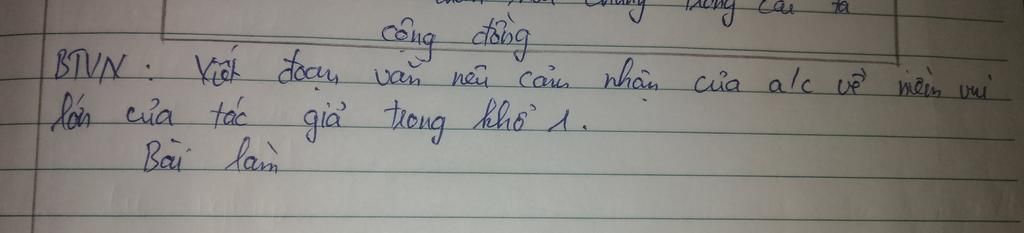 trong cái ta
cộng đồng
BTVN: Viết đoạn văn nêu cảm nhận của a/c về niềm vui
lớn của tác giả trong khổ 1.
Bài làm